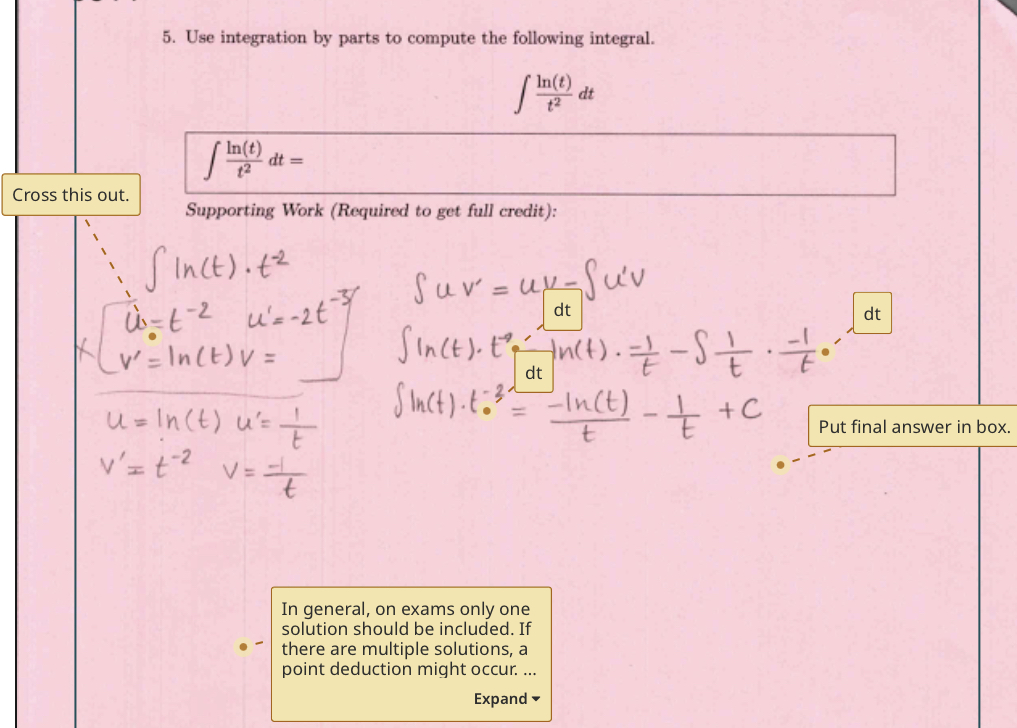 5. Use integration by parts to compute the following integral.
∫ ln(t)/t² dt
∫ ln(t)/t² dt =
Cross this out.
Supporting Work (Required to get full credit):
∫ ln(t) · t⁻²
u = t⁻² u' = -2t⁻³
v' = ln(t) v =
u = ln(t) u' = 1/t
v' = t⁻² v = -1/t
∫ u v' = uv - ∫ u'v
dt
dt
∫ ln(t) · t⁻² = ln(t) · -1/t - ∫ 1/t · -1/t
dt
∫ ln(t) · t⁻² = -ln(t)/t - 1/t + C
Put final answer in box.
In general, on exams only one
solution should be included. If
there are multiple solutions, a
point deduction might occur. ...
Expand